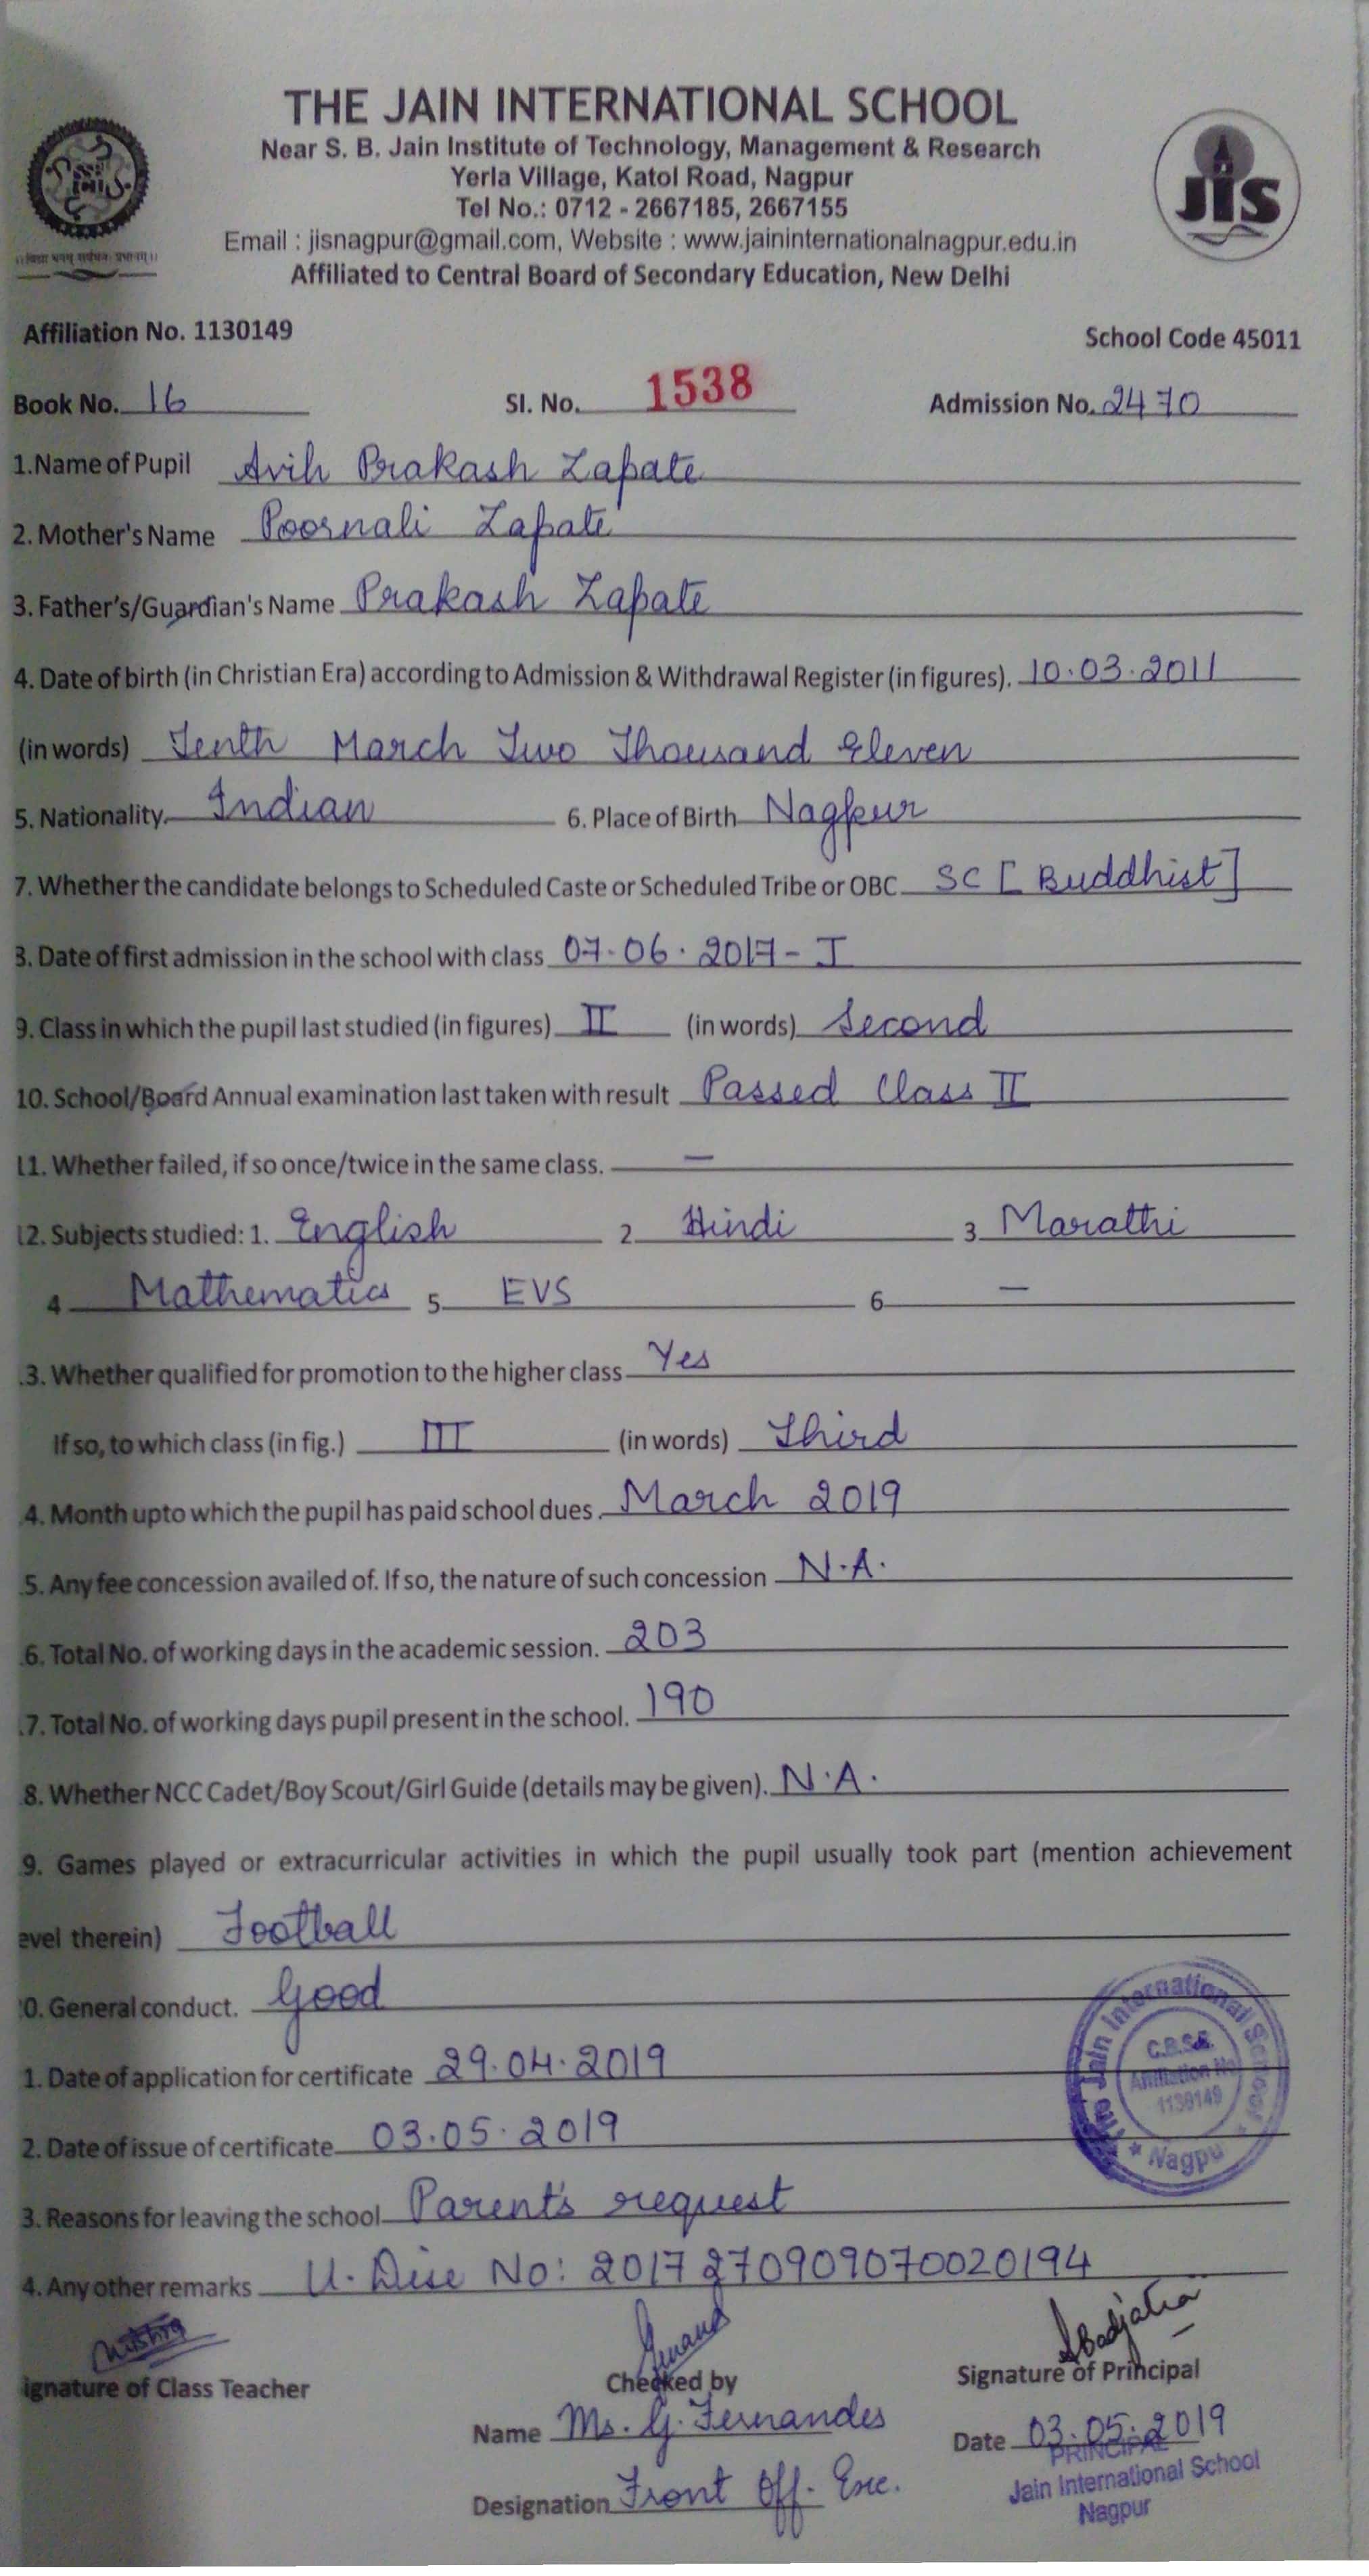 THE JAIN INTERNATIONAL SCHOOL
Near S. B. Jain Institute of Technology, Management & Research
Yerla Village, Katol Road, Nagpur
Tel No.: 0712 - 2667185, 2667155
Email : jisnagpur@gmail.com, Website : www.jaininternationalnagpur.edu.in
Affiliated to Central Board of Secondary Education, New Delhi
JIS
Affiliation No. 1130149 School Code 45011
Book No. 16 Sl. No. 1538 Admission No. 2470
1.Name of Pupil Avih Prakash Zapate
2. Mother's Name Poornali Zapate
3. Father's/Guardian's Name Prakash Zapate
4. Date of birth (in Christian Era) according to Admission & Withdrawal Register (in figures). 10.03.2011
(in words) Tenth March Two Thousand Eleven
5. Nationality. Indian 6. Place of Birth Nagpur
7. Whether the candidate belongs to Scheduled Caste or Scheduled Tribe or OBC SC [Buddhist]
8. Date of first admission in the school with class 07.06.2017 - I
9. Class in which the pupil last studied (in figures) II (in words) Second
10. School/Board Annual examination last taken with result Passed Class II
11. Whether failed, if so once/twice in the same class. —
12. Subjects studied: 1. English 2 Hindi 3 Marathi
4 Mathematics 5 EVS 6 —
.3. Whether qualified for promotion to the higher class Yes
If so, to which class (in fig.) III (in words) Third
.4. Month upto which the pupil has paid school dues. March 2019
.5. Any fee concession availed of. If so, the nature of such concession N.A.
.6. Total No. of working days in the academic session. 203
.7. Total No. of working days pupil present in the school. 190
8. Whether NCC Cadet/Boy Scout/Girl Guide (details may be given). N.A.
9. Games played or extracurricular activities in which the pupil usually took part (mention achievement
evel therein) Football
0. General conduct. Good
1. Date of application for certificate 29.04.2019
2. Date of issue of certificate 03.05.2019
3. Reasons for leaving the school Parent's request
4. Any other remarks U. Dise No: 2017270909070020194
The Jain International School
C.B.S.E.
Affiliation No
1130149
★ Nagpu
ignature of Class Teacher Checked by Signature of Principal
Name Ms. G. Fernandes Date 03.05.2019
PRINCIPAL
Designation Front Off. Exe. Jain International School
Nagpur